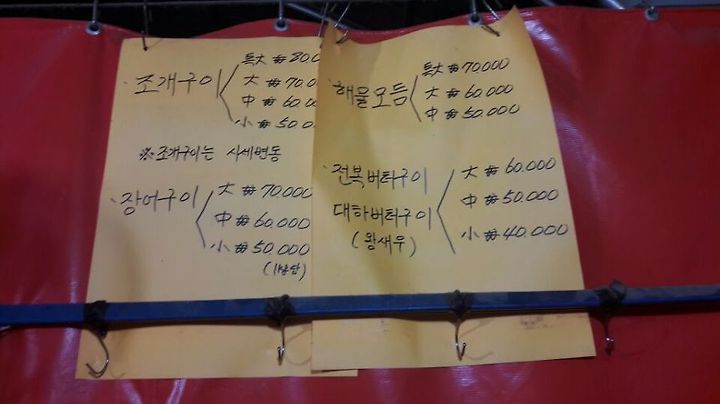 조개구이
특大 ₩80,0
大 ₩70,0
中 ₩60,0
小 ₩50,0
※ 조개구이는 시세변동
장어구이
大 ₩70,000
中 ₩60,000
小 ₩50,000
해물모듬
특大 ₩70,000
大 ₩60,000
中 ₩50,000
전복버터구이
대하버터구이
(왕새우)
大 ₩60,000
中 ₩50,000
小 ₩40,000